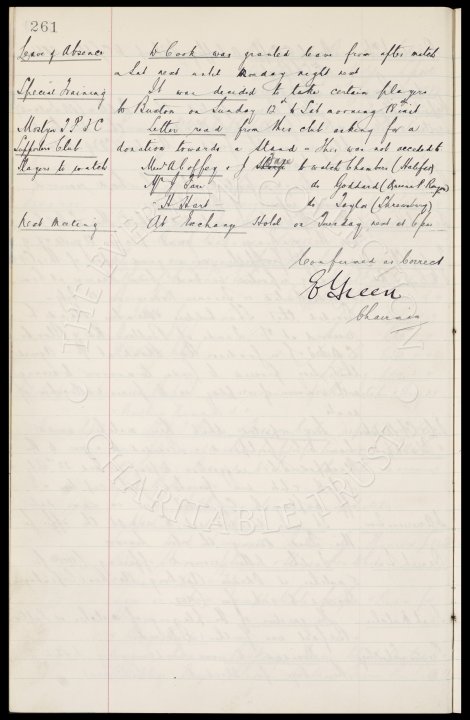 261
Leave of Absence D Cook was granted leave from after match
on Sat next until Monday night next
Special Training It was decided to take certain players
to Buxton on Sunday 12th to Sat morning 18th inst
Mostyn Letter read from this club asking for a
Supporters Club donation towards a Stand - this was not acceded to
Players to watch A Coffey & J to watch Chambers (Halifax)
Mr J Farr do Goddard (
" H Hart do Taylor (Shrewsbury)
Next Meeting At Exchange Hotel on Tuesday next at 6 pm
Confirmed as Correct
E Green
Chairman
THE EVERTON COLLECTION
CHARITABLE TRUST